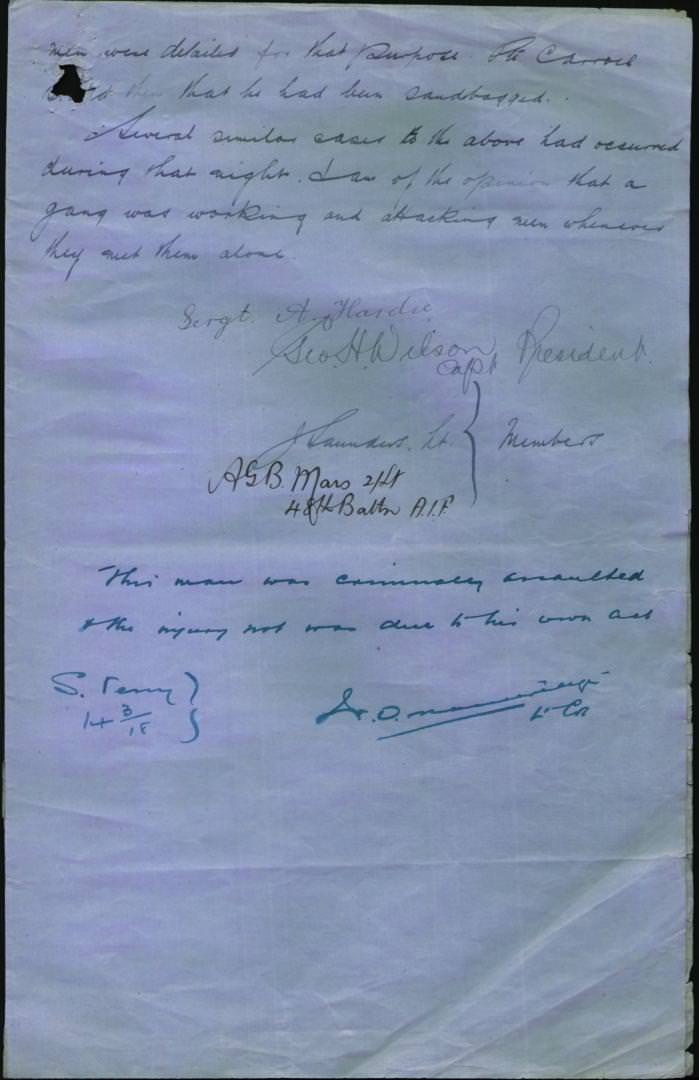 men were detailed for that purpose. Pte Carroll
that he had been sandbagged.
Several similar cases to the above had occurred
during that night. I am of the opinion that a
gang was working and attacking men whenever
they met them alone.
Sergt. A. Hardie
Geo. H. Wilson Capt President.
J Saunders. Lt. } Members
A G B. Mars 2/Lt
48th Battn A.I.F.
This man was criminally assaulted
& the injury not was due to his own act
S. Terry }
14 3/18 }
L. O. Lt Col